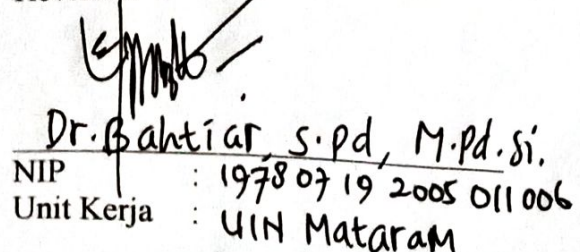 Dr. Bahtiar, S.Pd, M.Pd.Si.
NIP : 19780719 2005 011 006
Unit Kerja : UIN Mataram